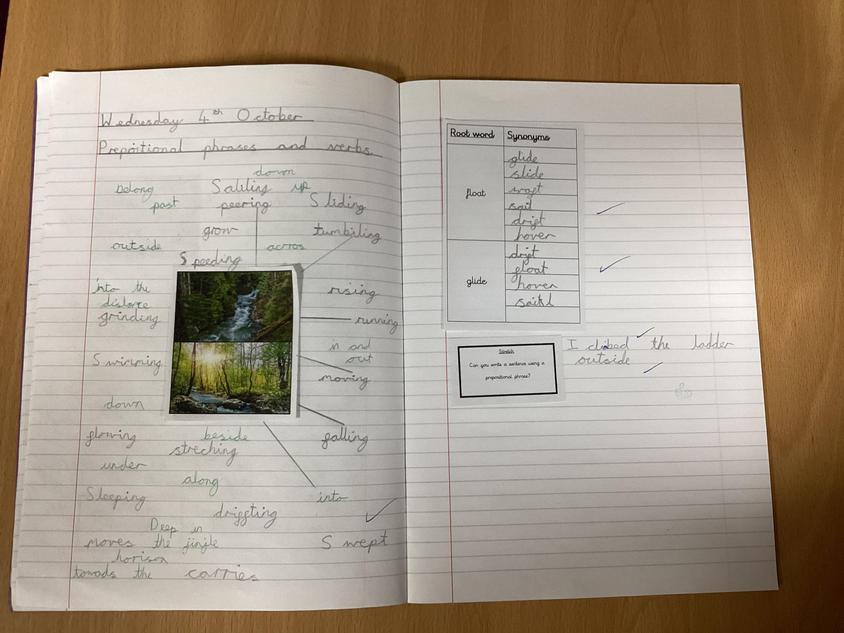 Wednesday 4th October
Prepotional phrases and verbs.
down
Belong Saliling up
past peering Sliding
grow tumbiling
outside acrros
Speeding
into the
distance
grinding
rising
running
in and
out
Swimming
moving
down
flowing beside falling
streching
under
along
Sleeping into
driggting
Deep in
moves the jungle Swept
horison
towads the carries
Root word Synonyms
float
glide
slide
waft
sail
drift
hover
glide
drift
float
hover
Stretch
Can you write a sentence using a
prepositional phrase?
I clibed the ladder
outside